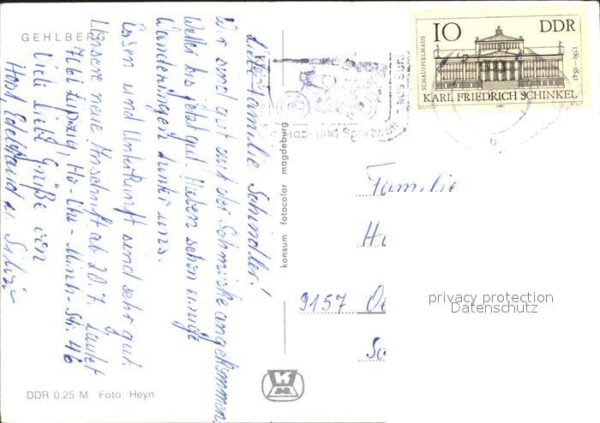 GEHLBERG
Liebe Familie Schindler!
Wir sind gut auf der Schmücke angekommen.
Wetter bis jetzt gut. Haben schon einige
Wanderungen hinter uns.
Essen und Unterkunft sind sehr gut.
Unsere neue Anschrift ab 20.7. lautet
Leipzig, Ho-Chi-Minh-Str. 46
Viele liebe Grüße von
Horst, u.
DDR 0,25 M Foto: Heyn
konsum fotocolor magdeburg
10 DDR
SCHAUSPIELHAUS
1781-1841
KARL FRIEDRICH SCHINKEL
Familie
H
9157
privacy protection
Datenschutz